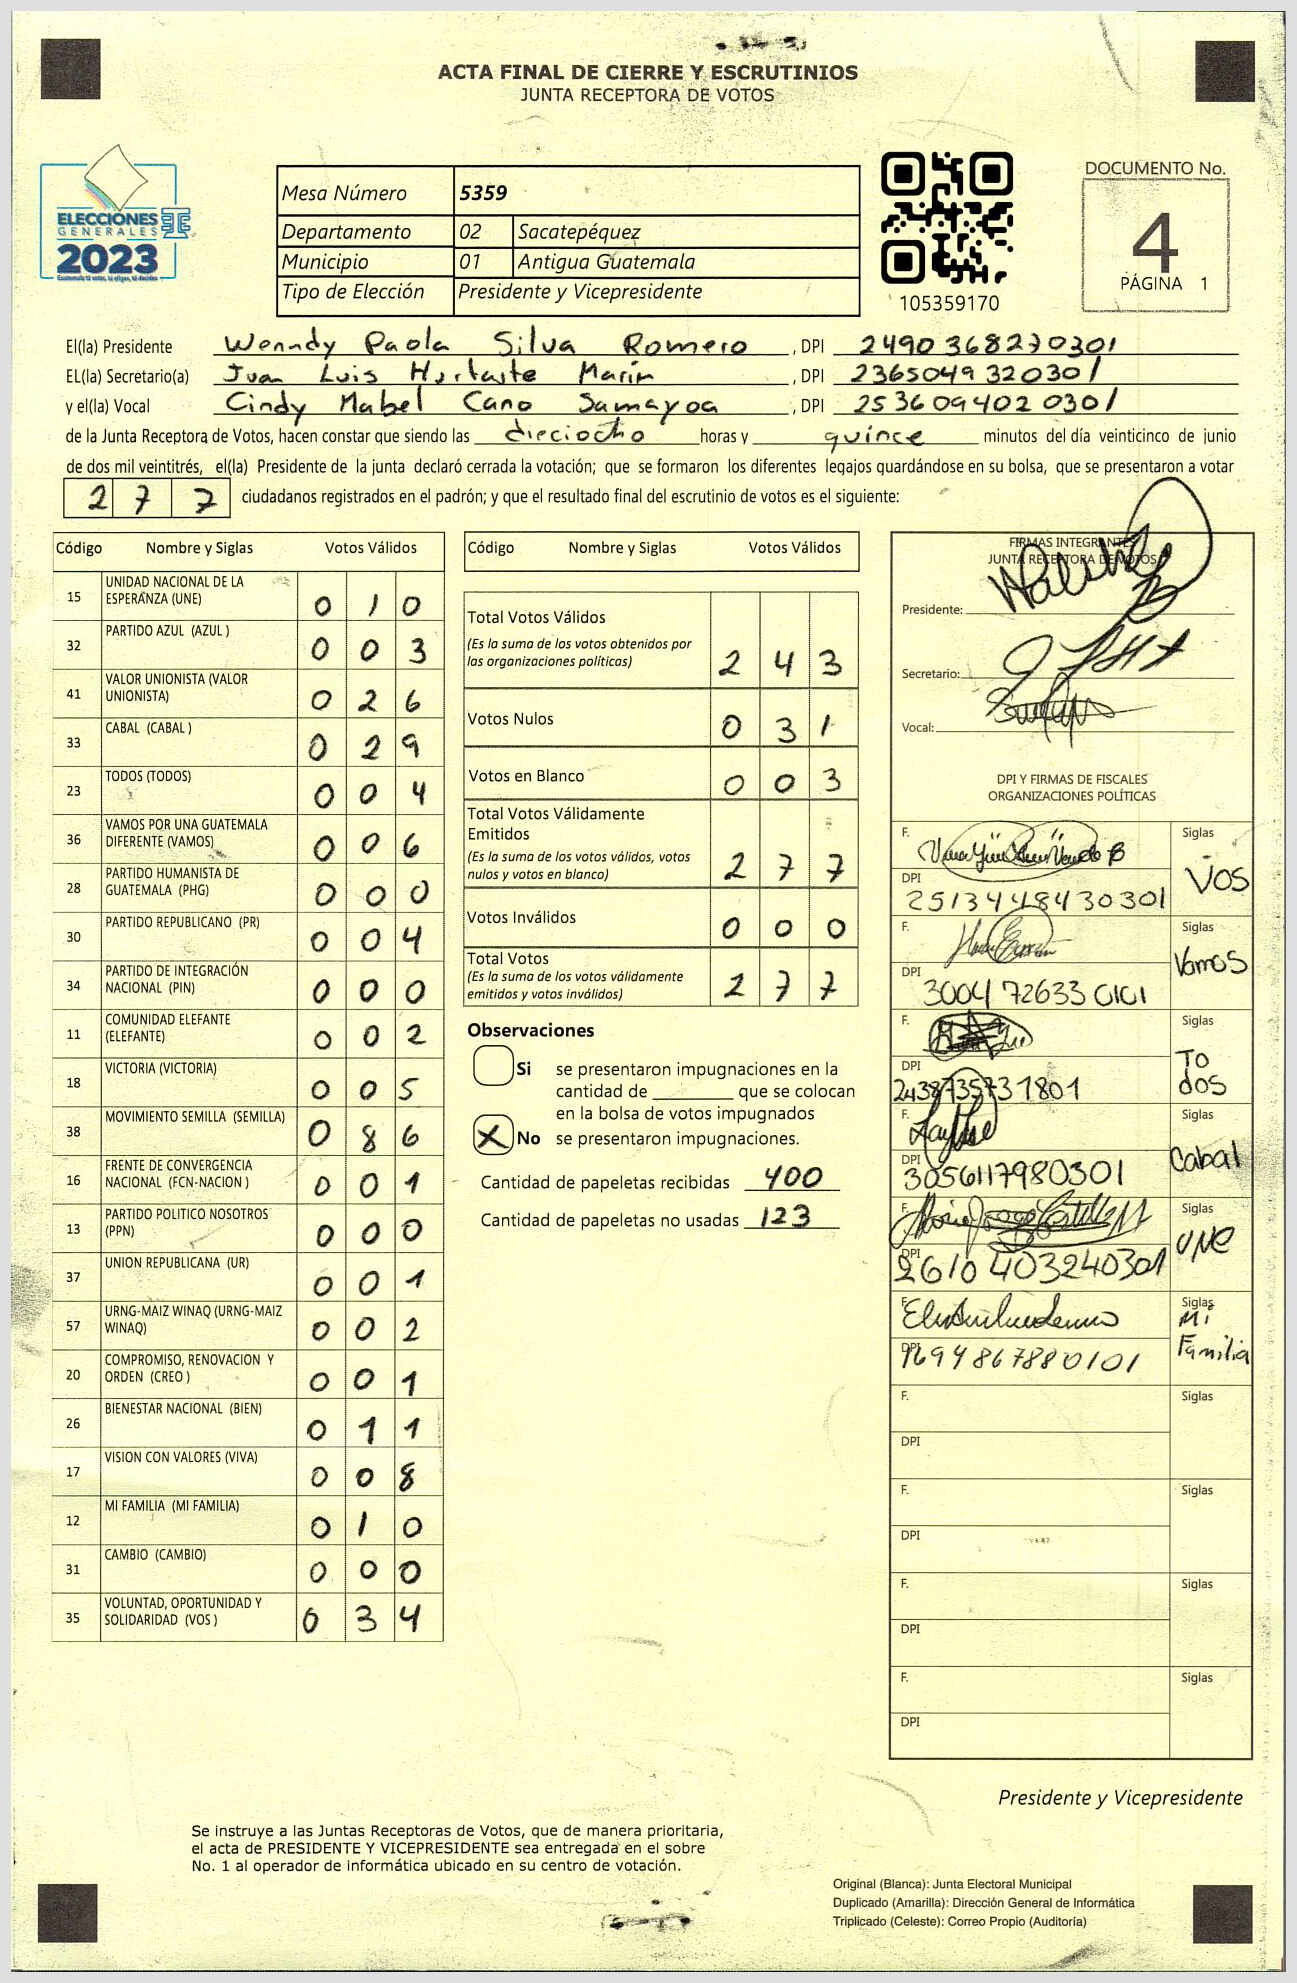 ACTA FINAL DE CIERRE Y ESCRUTINIOS
JUNTA RECEPTORA DE VOTOS
ELECCIONES
GENERALES
2023
Mesa Número 5359
Departamento 02 Sacatepéquez
Municipio 01 Antigua Guatemala
Tipo de Elección Presidente y Vicepresidente
105359170
DOCUMENTO No.
4
PÁGINA 1
El(la) Presidente Wenndy Paola Silva Romero , DPI 2490368270301
EL(la) Secretario(a) Juan Luis Hurtarte Marín , DPI 2365049320301
y el(la) Vocal Cindy Mabel Cano Samayoa , DPI 2536094020301
de la Junta Receptora de Votos, hacen constar que siendo las dieciocho horas y quince minutos del día veinticinco de junio
de dos mil veintitrés, el(la) Presidente de la junta declaró cerrada la votación; que se formaron los diferentes legajos guardándose en su bolsa, que se presentaron a votar
277 ciudadanos registrados en el padrón; y que el resultado final del escrutinio de votos es el siguiente:
Código Nombre y Siglas Votos Válidos
15 UNIDAD NACIONAL DE LA ESPERANZA (UNE) 010
32 PARTIDO AZUL (AZUL ) 003
41 VALOR UNIONISTA (VALOR UNIONISTA) 026
33 CABAL (CABAL ) 029
23 TODOS (TODOS) 004
36 VAMOS POR UNA GUATEMALA DIFERENTE (VAMOS) 006
28 PARTIDO HUMANISTA DE GUATEMALA (PHG) 000
30 PARTIDO REPUBLICANO (PR) 004
34 PARTIDO DE INTEGRACIÓN NACIONAL (PIN) 000
11 COMUNIDAD ELEFANTE (ELEFANTE) 002
18 VICTORIA (VICTORIA) 005
38 MOVIMIENTO SEMILLA (SEMILLA) 086
16 FRENTE DE CONVERGENCIA NACIONAL (FCN-NACION ) 001
13 PARTIDO POLITICO NOSOTROS (PPN) 000
37 UNION REPUBLICANA (UR) 001
57 URNG-MAIZ WINAQ (URNG-MAIZ WINAQ) 002
20 COMPROMISO, RENOVACION Y ORDEN (CREO ) 001
26 BIENESTAR NACIONAL (BIEN) 011
17 VISION CON VALORES (VIVA) 008
12 MI FAMILIA (MI FAMILIA) 010
31 CAMBIO (CAMBIO) 000
35 VOLUNTAD, OPORTUNIDAD Y SOLIDARIDAD (VOS ) 034
Código Nombre y Siglas Votos Válidos
Total Votos Válidos
(Es la suma de los votos obtenidos por
las organizaciones políticas) 243
Votos Nulos 031
Votos en Blanco 003
Total Votos Válidamente
Emitidos
(Es la suma de los votos válidos, votos
nulos y votos en blanco) 277
Votos Inválidos 000
Total Votos
(Es la suma de los votos válidamente
emitidos y votos inválidos) 277
Observaciones
Si se presentaron impugnaciones en la
cantidad de que se colocan
en la bolsa de votos impugnados
X No se presentaron impugnaciones.
Cantidad de papeletas recibidas 400
Cantidad de papeletas no usadas 123
FIRMAS INTEGRANTES
JUNTA RECEPTORA DE VOTOS
Presidente:
Secretario:
Vocal:
DPI Y FIRMAS DE FISCALES
ORGANIZACIONES POLÍTICAS
F. Siglas VOS
DPI 2513448430301
F. Siglas Vamos
DPI 3004726330101
F. Siglas TO
dos
DPI 2438735731801
F. Siglas Cabal
DPI 3056117980301
F. Siglas UNE
DPI 2610403240301
F. Siglas Mi
Familia
DPI 1694867880101
F. Siglas
DPI
F. Siglas
DPI
F. Siglas
DPI
F. Siglas
DPI
Presidente y Vicepresidente
Se instruye a las Juntas Receptoras de Votos, que de manera prioritaria,
el acta de PRESIDENTE Y VICEPRESIDENTE sea entregada en el sobre
No. 1 al operador de informática ubicado en su centro de votación.
Original (Blanca): Junta Electoral Municipal
Duplicado (Amarilla): Dirección General de Informática
Triplicado (Celeste): Correo Propio (Auditoría)